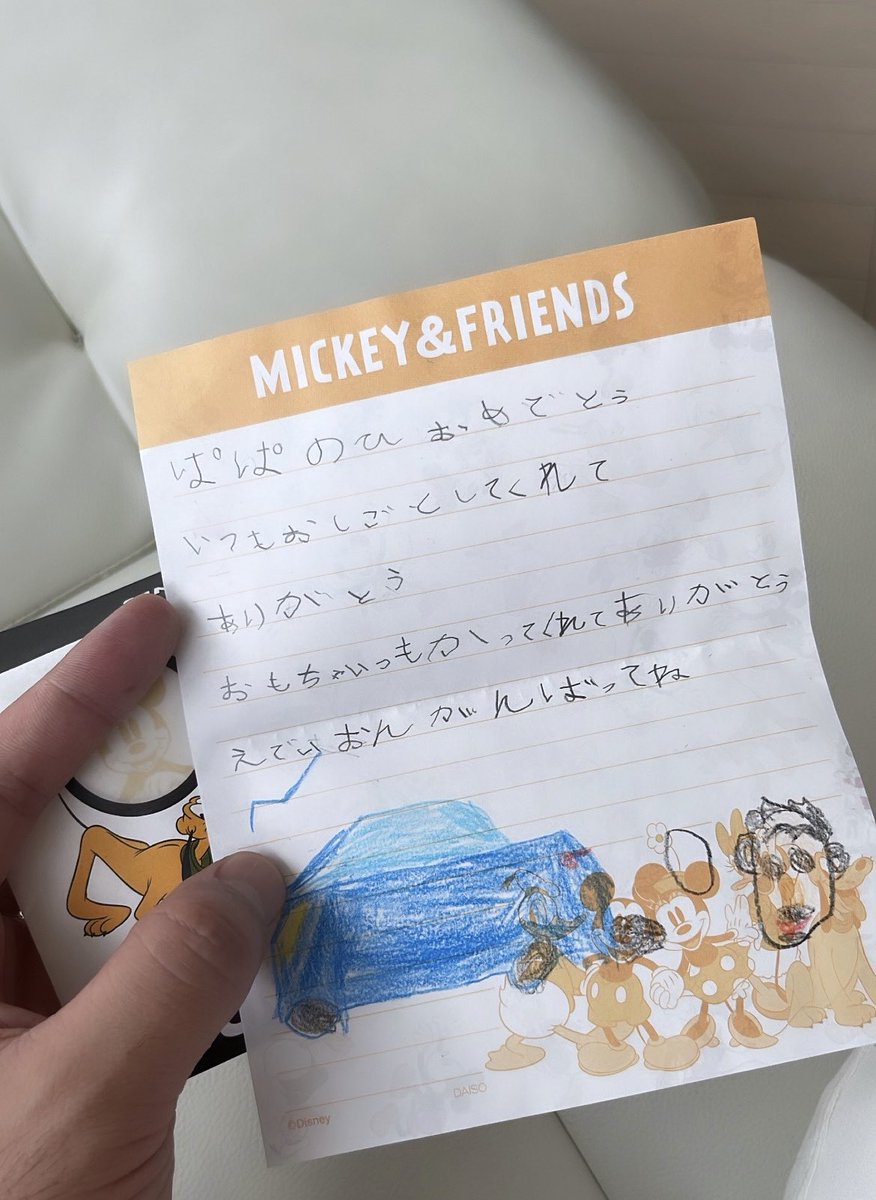 MICKEY&FRIENDS
ぱぱ のひ おめでとう
いつもおしごとしてくれて
ありがとう
おもちゃいつもかってくれてありがとう
えでぃおん がんばってね
DAISO
©Disney